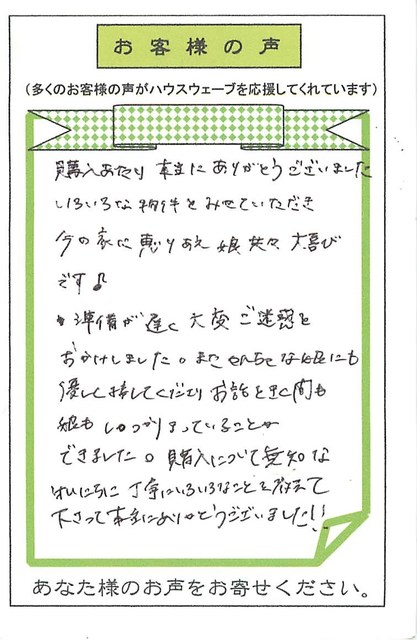 お客様の声
(多くのお客様の声がハウスウェーブを応援してくれています)
購入あたり 本当にありがとうございました
いろいろな物件をみせていただき
今の家に恵りあえ 娘共々 大喜び
です♪
準備が遅く 大変 ご迷惑を
おかけしました。また やんちゃな娘にも
優しく接してくださり お話をきく間も
娘も しっかりまっていることが
できました。購入について無知な
わたしたちに 丁寧にいろいろなことを教えて
下さって本当にありがとうございました!!
あなた様のお声をお寄せください。